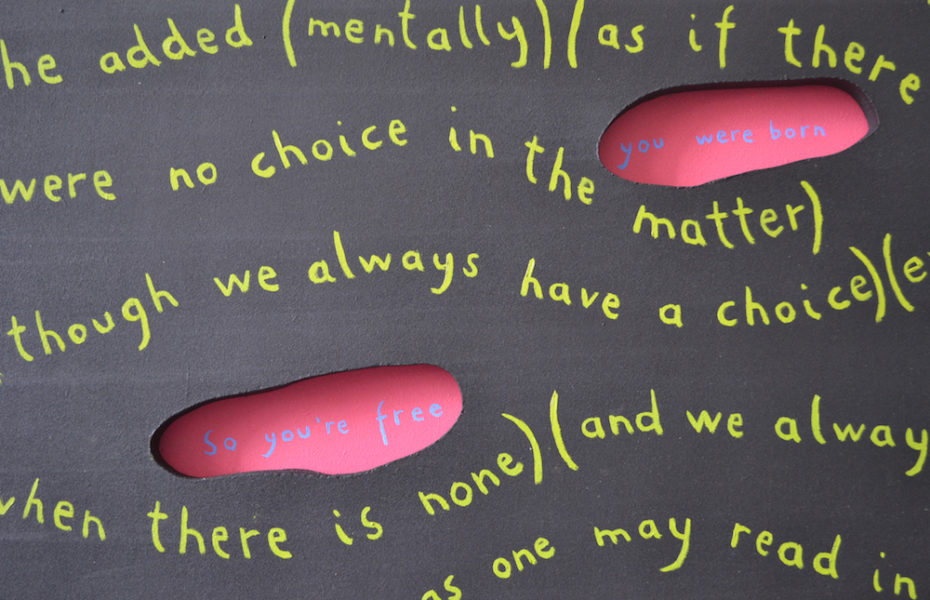 he added (mentally) (as if there
were no choice in the
you were born
matter)
though we always have a choice) (e
So you're free
when there is none) (and we alway
as one may read in